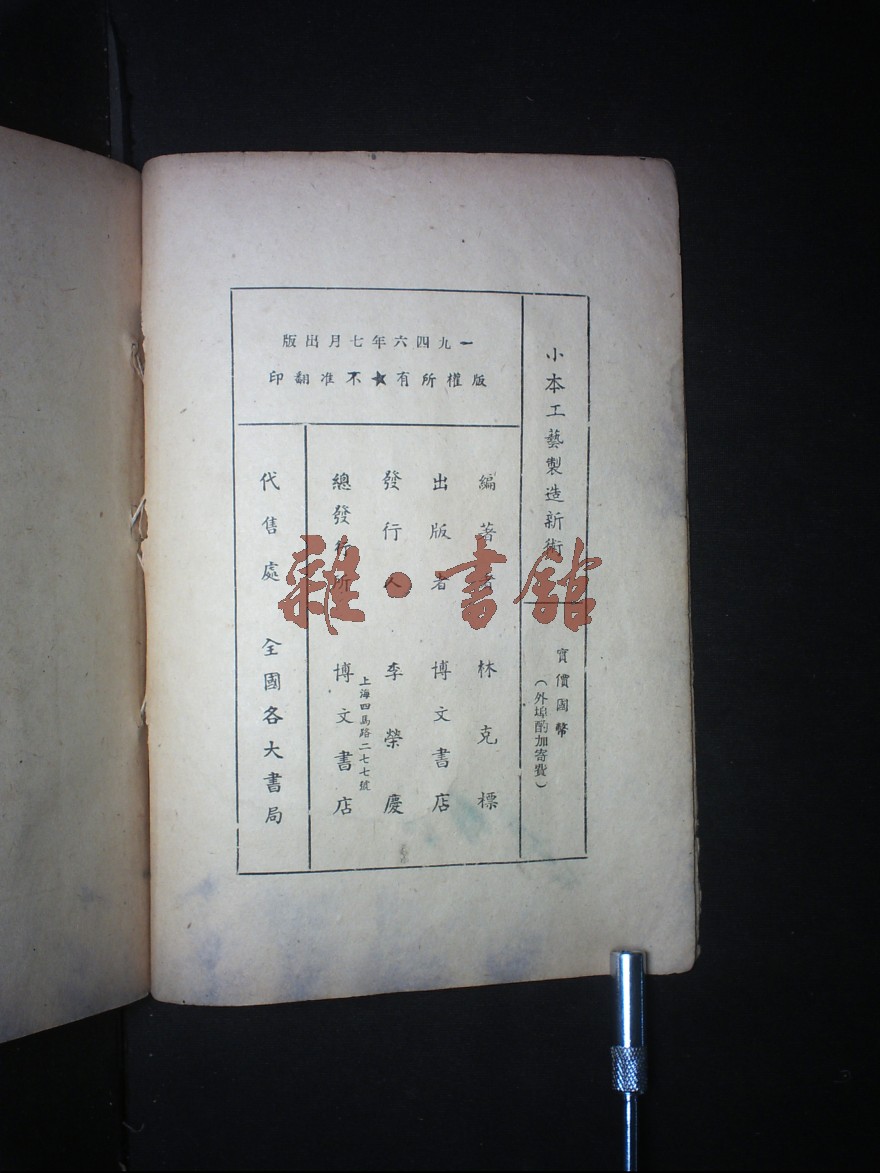 小本工藝製造新術
實價國幣
（外埠酌加寄費）
一九四六年七月出版
版權所有★不准翻印
編著者 林克標
出版者 博文書店
發行人 李榮慶
上海四馬路二七七號
總發行所 博文書店
代售處 全國各大書局
雜·書館